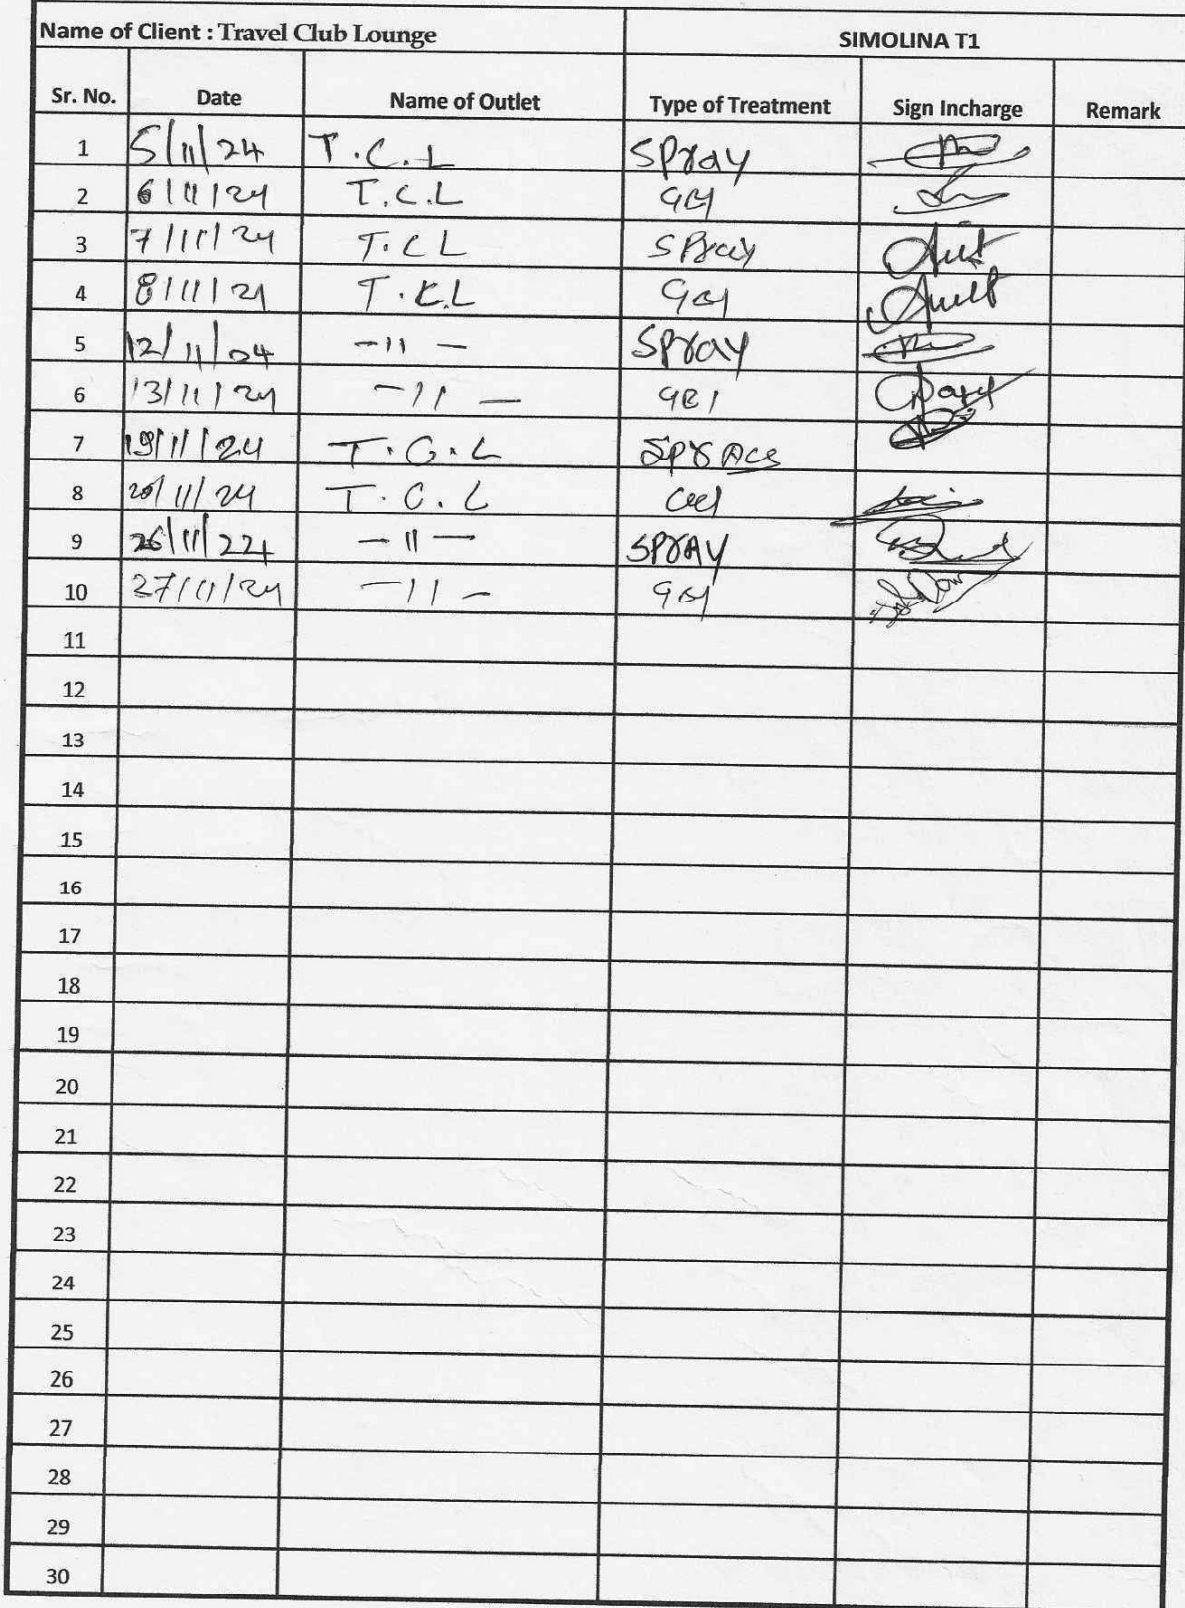 Name of Client : Travel Club Lounge SIMOLINA T1
Sr. No. Date Name of Outlet Type of Treatment Sign Incharge Remark
1 5/11/24 T.C.L Spray
2 6/11/24 T.C.L
3 7/11/24 T.CL Spray
4 8/11/24 T.C.L
5 12/11/24 -11- Spray
6 13/11/24 -11-
7 19/11/24 T.C.L
8 20/11/24 T.C.L
9 26/11/224 -11- SPRAY
10 27/11/24 -11-
11
12
13
14
15
16
17
18
19
20
21
22
23
24
25
26
27
28
29
30